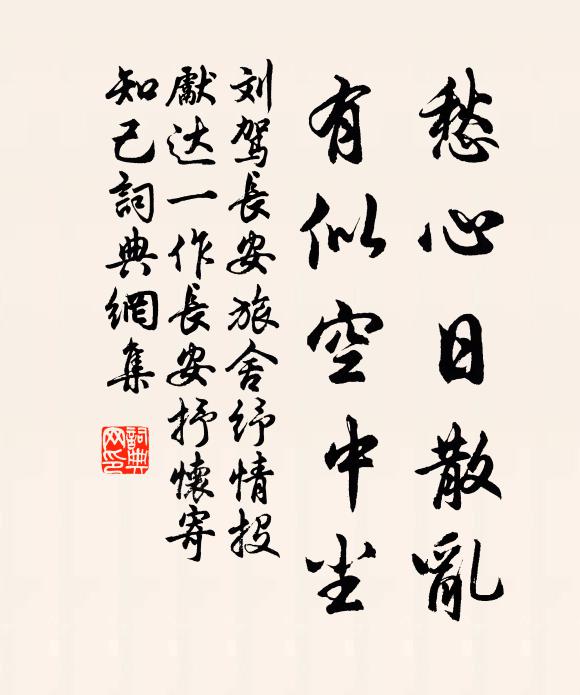 愁心日散亂
有似空中尘
刘駕長安旅舍纾情投
獻达一作長安抒懷寄
知己詞典網集
詞典
网印